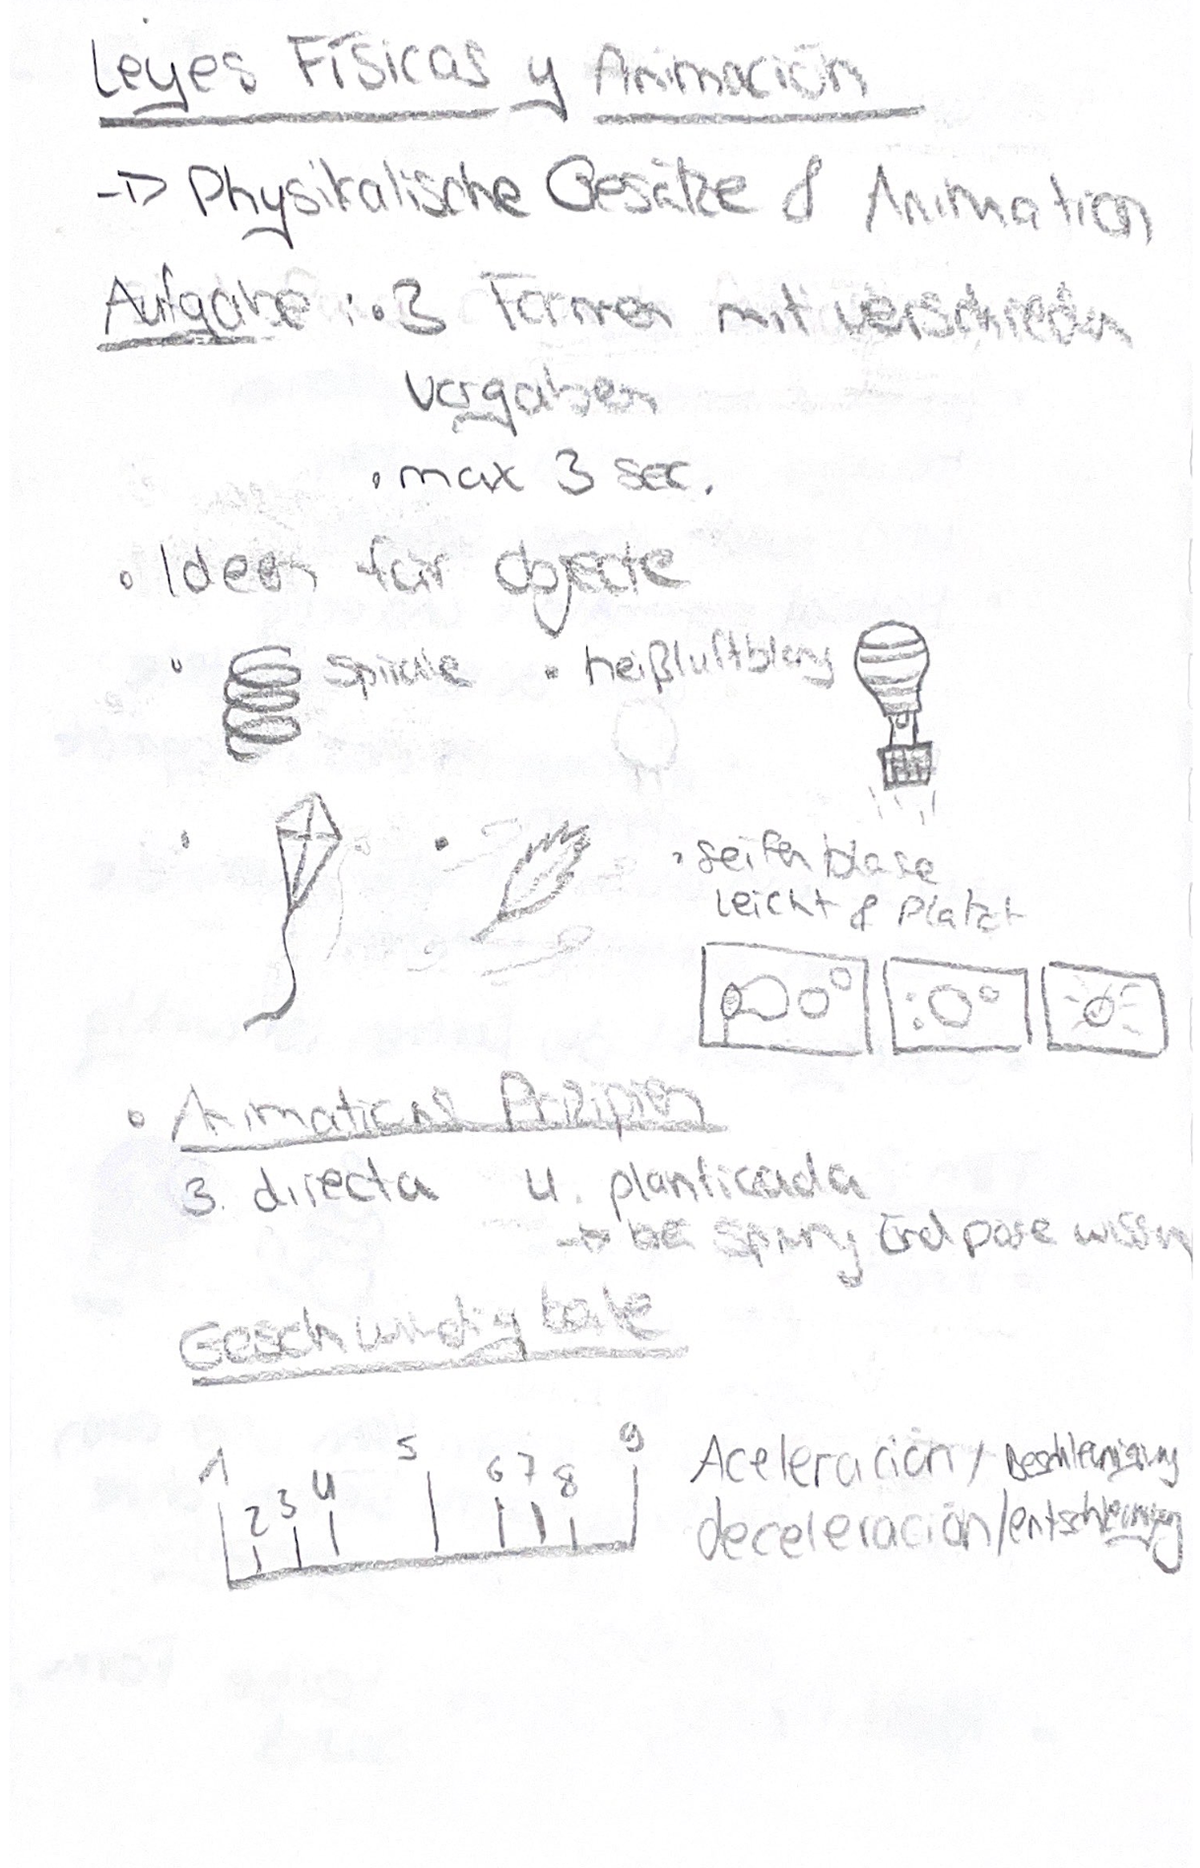 Leyes Físicas y Animación
-> Physikalische Gesätze & Animation
Aufgabe: • 3 Formen mit verschieden
vorgaben
• max 3 sec.
• Ideen für objecte
• spirale • heißluftblong
• •
• seifenblase
leicht & platzt
• Animations Prizipien
3. directa 4. planticada
-> endpose wissen
Geschwindigkeite
1 2 3 4 5 6 7 8 9
Aceleración / Beschleunigung
deceleración/entschleunigung